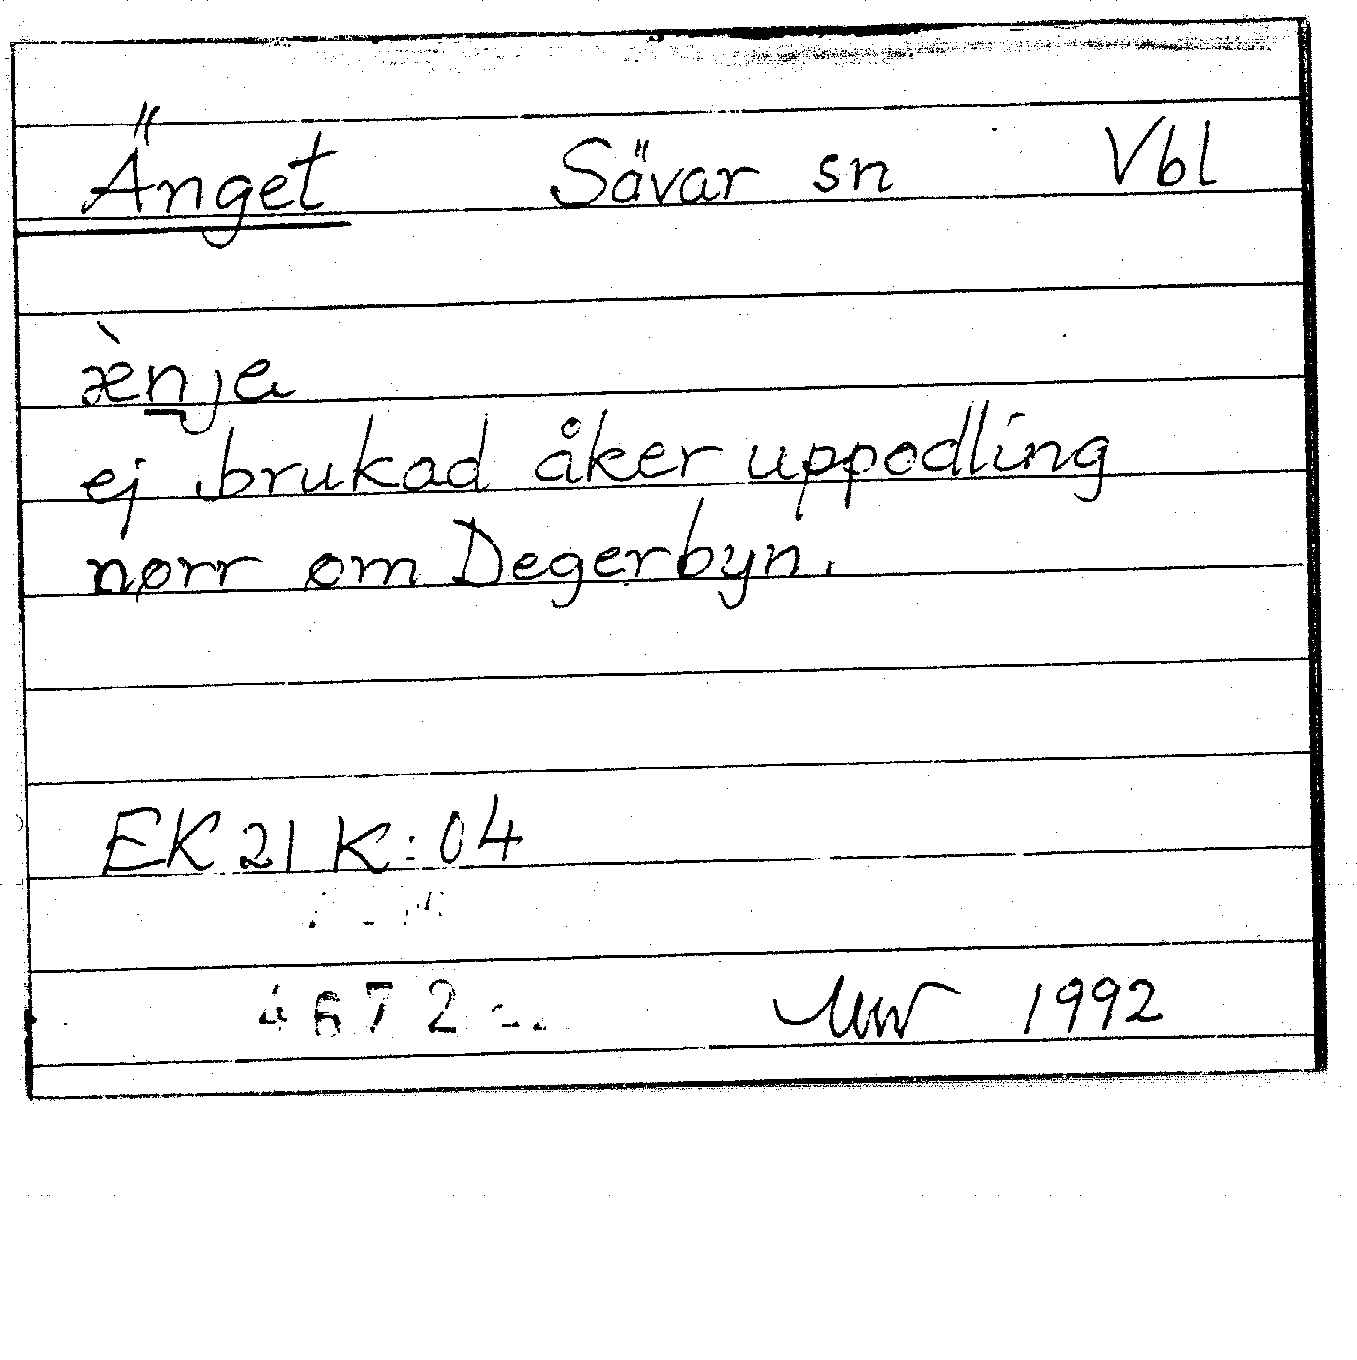 Änget Sävar sn Vbl
æ̀nja
ej brukad åker uppodling
norr om Degerbyn.
EK 21 K:04
4672
1992